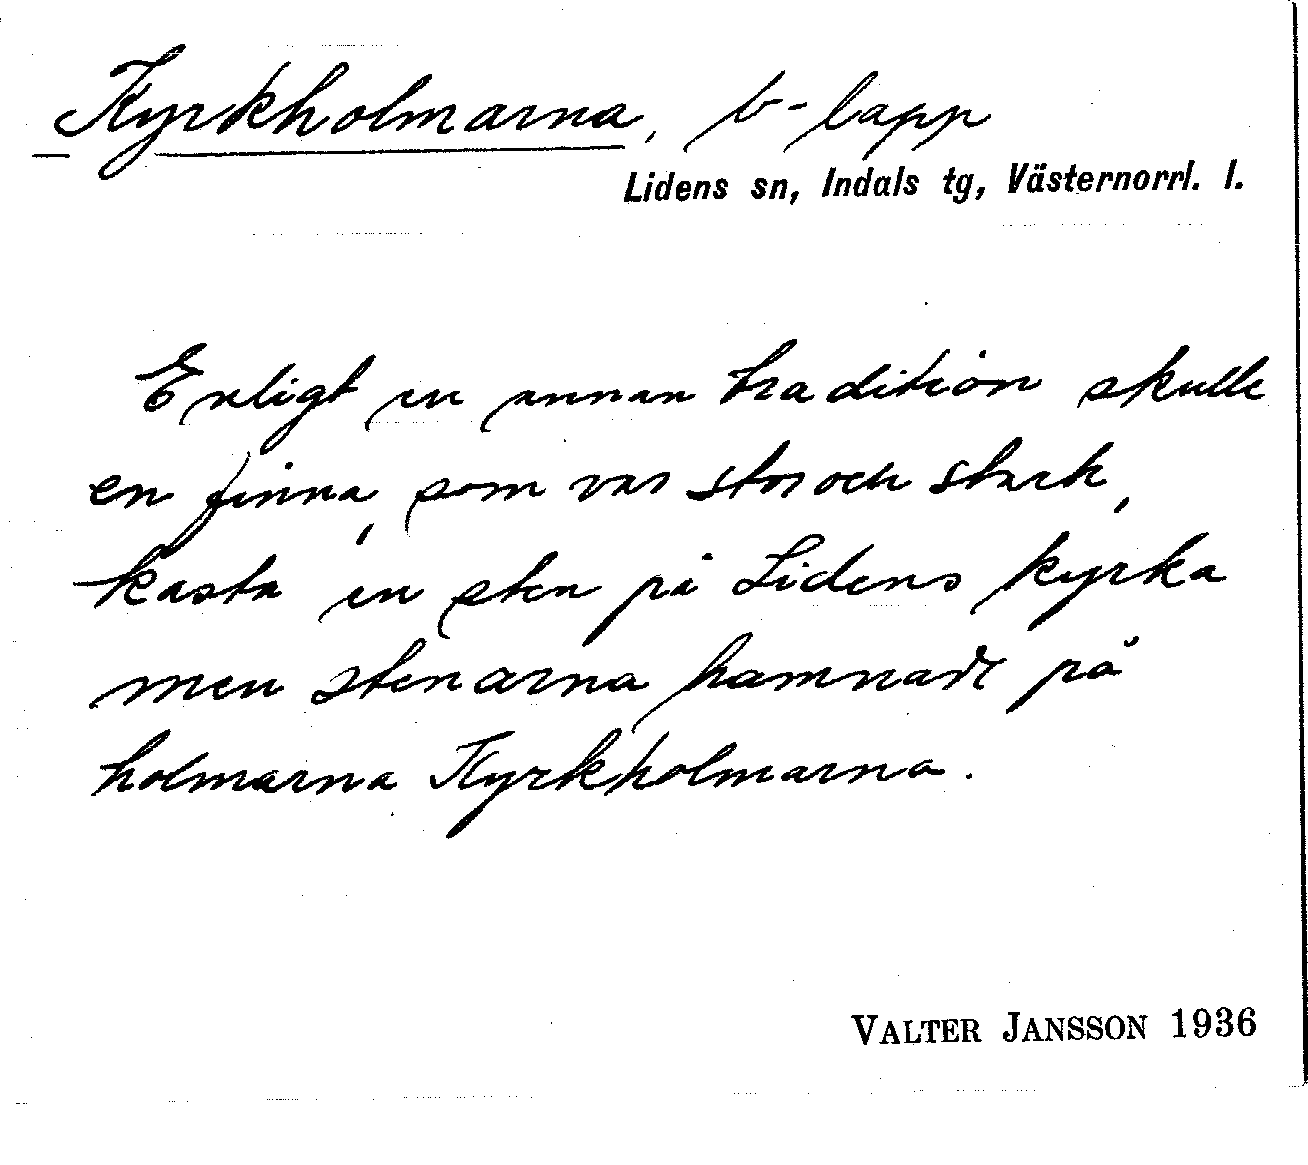 Kyrkholmarna, b-lapp
Lidens sn, Indals tg, Västernorrl. l.
Enligt en annan tradition skulle
en finna, som var stor och stark,
kasta en sten på Lidens kyrka
men stenarna hamnade på
holmarna Kyrkholmarna.
VALTER JANSSON 1936